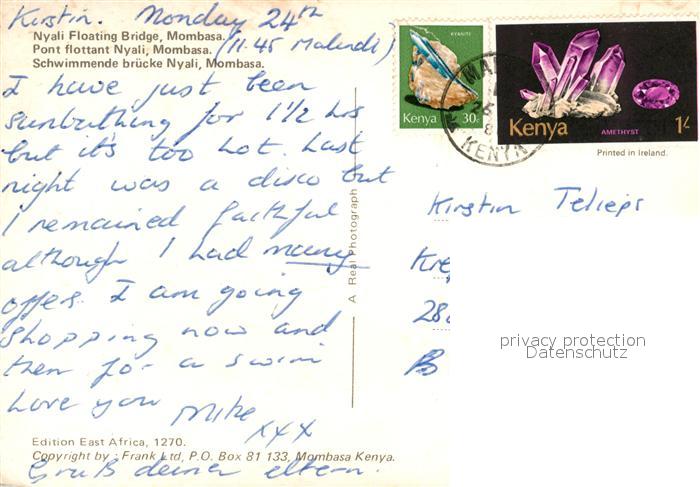 Kirstin. Monday 24th
Nyali Floating Bridge, Mombasa.
Pont flottant Nyali, Mombasa. (11.45 Malindi)
Schwimmende brücke Nyali, Mombasa.
I have just been
sunbathing for 1½ hrs
but it's too hot. Last
night was a disco but
I remained faithful
although I had many
offers. I am going
shopping now and
then for a swim
Love you Mike
xxx
Edition East Africa, 1270.
Copyright by: Frank Ltd, P.O. Box 81 133, Mombasa Kenya.
Gruß deiner eltern.
A Real Photograph
KYANITE
Kenya 30c
Kenya AMETHYST 1/-
KENYA
Printed in Ireland.
Kirstin
privacy protection
Datenschutz